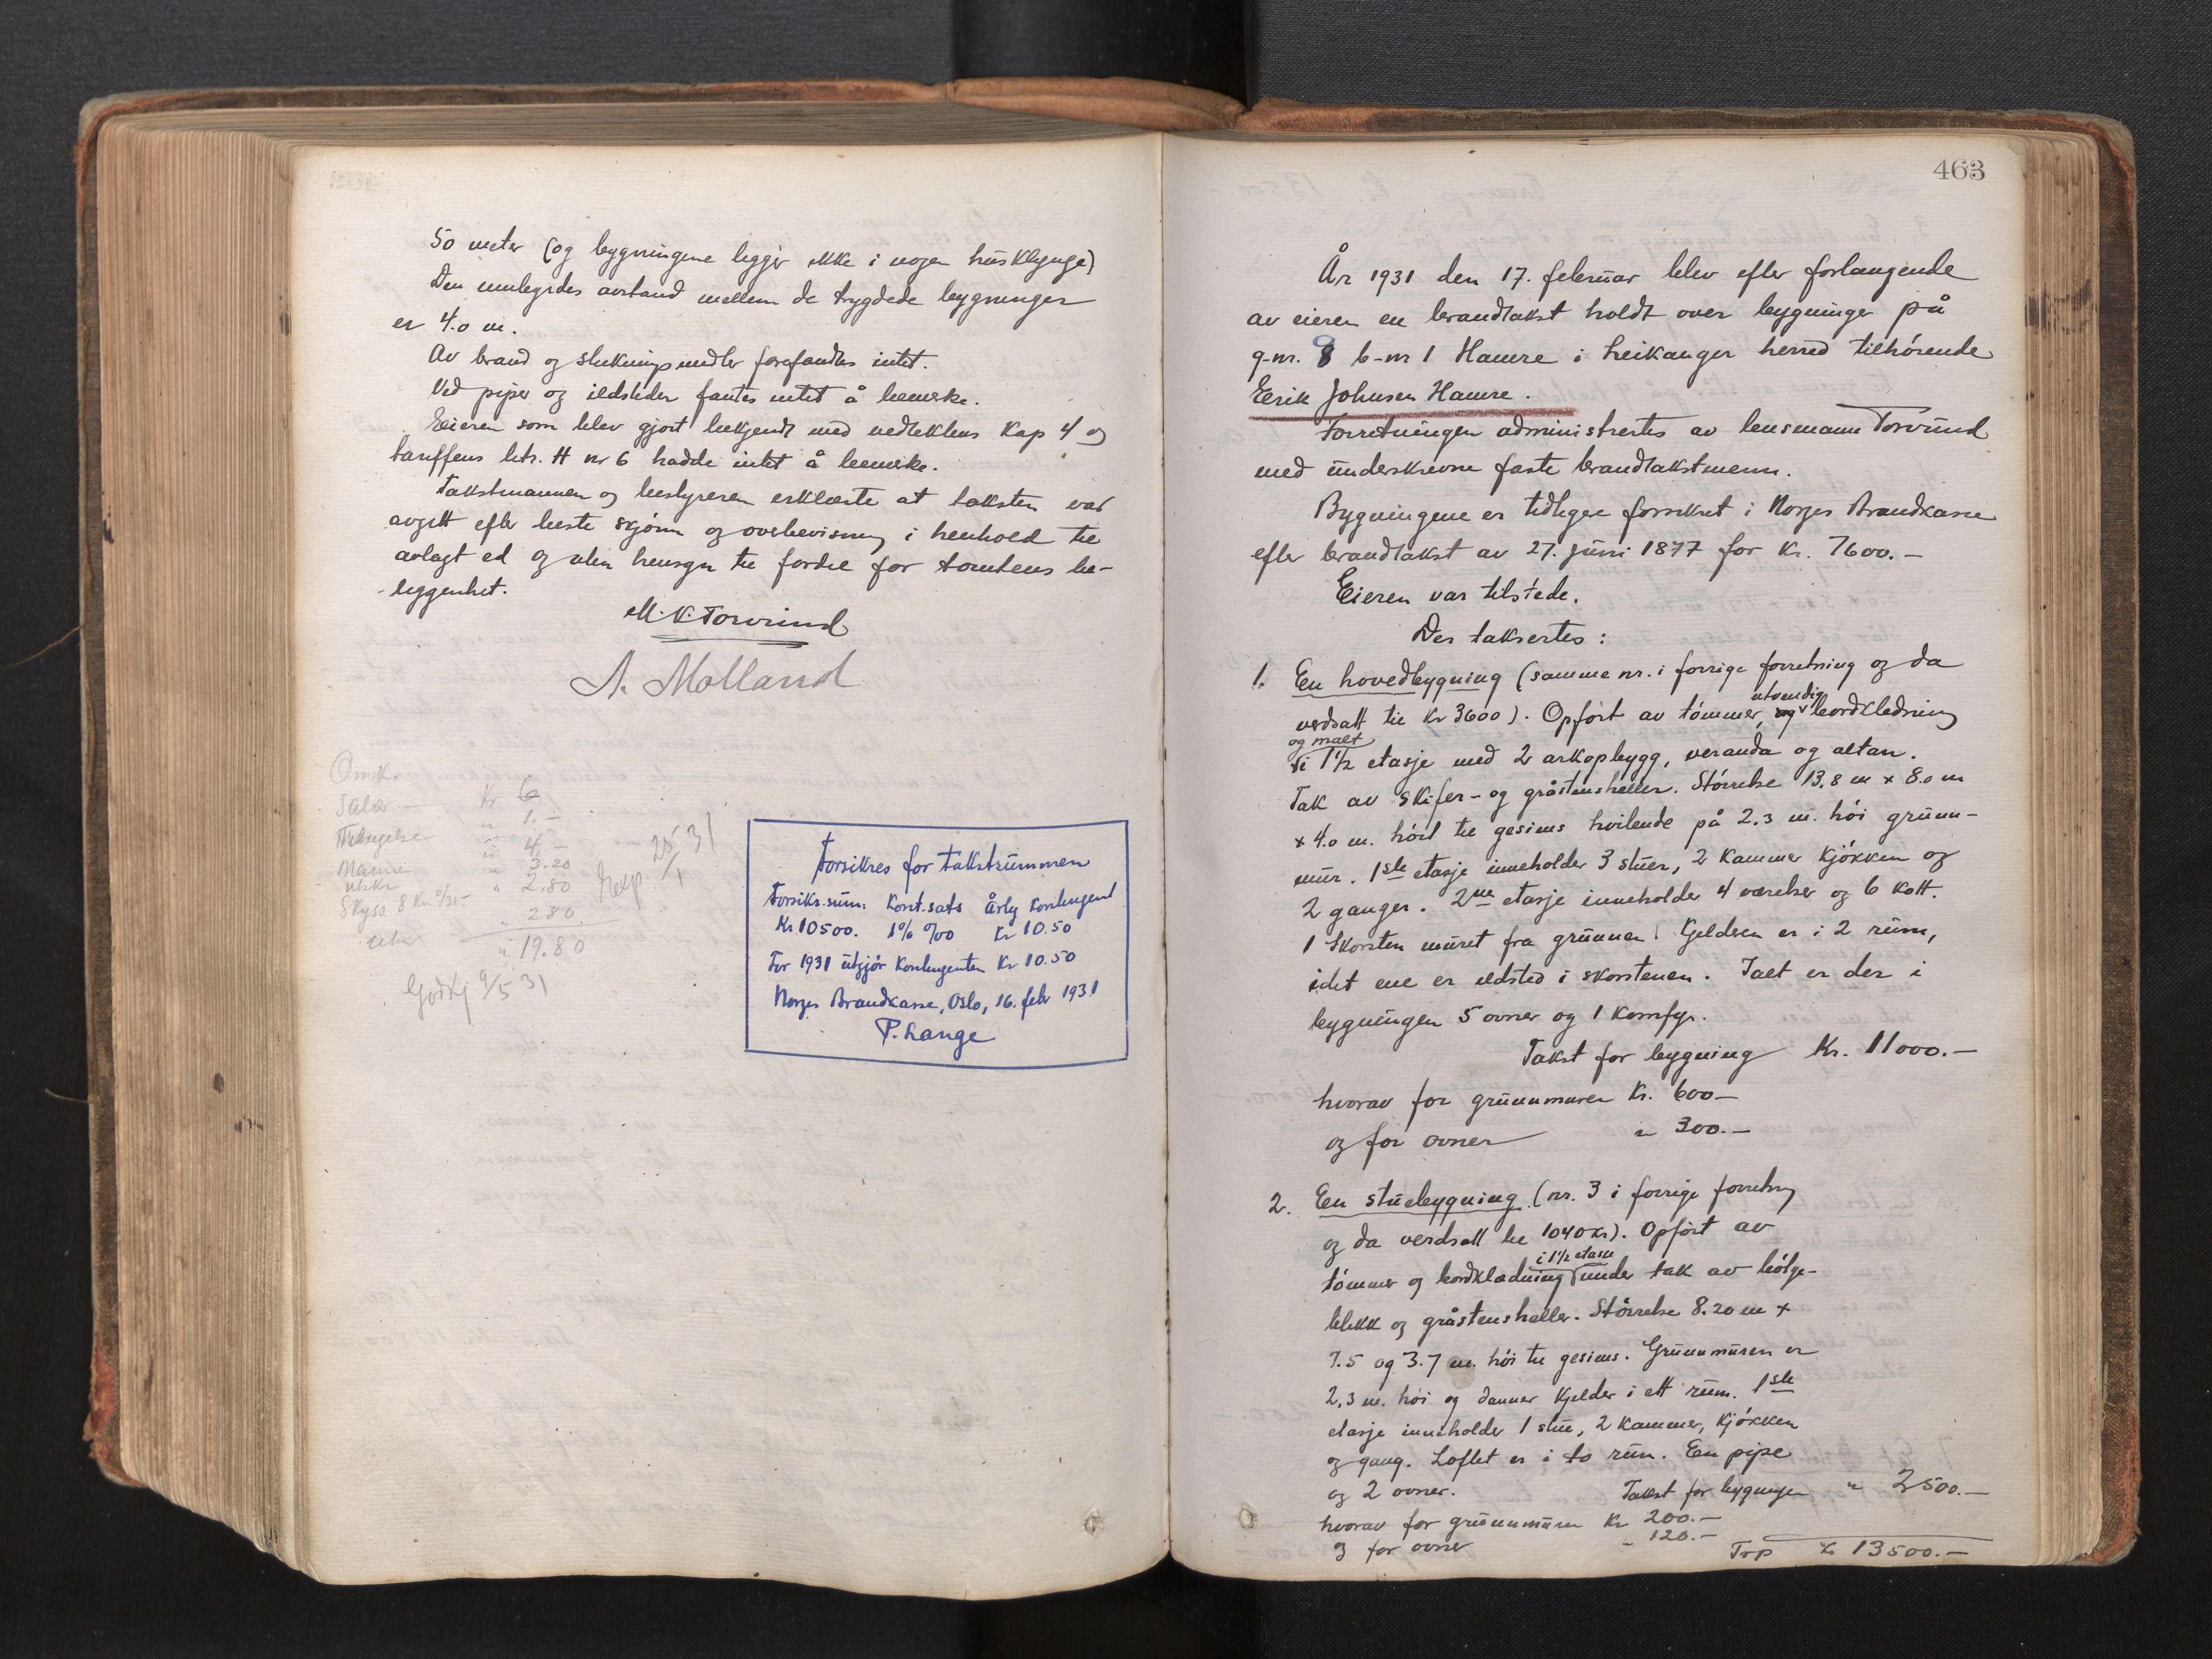 50 meter (og bygningene ligger ikke i nogen husklynge)
Den innbyrdes avstand mellem de trygdede bygninger
er 4.0 m.
Av brand og slukningsmidler forefandtes intet.
Ved piper og ildsteder fantes intet å bemerke.
Eieren som blev gjort bekjendt med vedtektens Kap 4 og
tariffens litr. H nr 6 hadde intet å bemerke.
Takstmannen og bestyreren erklærte at taksten var
avgitt efter beste skjønn og overbevisning i henhold til
avlagt ed og uten hensyn til fordel for tomtens be-
-liggenhet.
M. K. Torvund
A. Molland
Omk.
Salær Kr 6
" 1.-
" 4.-
" 3.20
Skyss 8 Km " 2.80
" 2.80
" 19.80
Godkj 9/5 31
Forsikres for takstsummen
Forsikr.sum: Kont.sats Årlig Kontingent
Kr 10500. 1 % 0/00 Kr 10.50
For 1931 utgjør Kontingenten Kr 10.50
Norges Brandkasse, Oslo, 16. febr 1931
P. Lange
463
År 1931 den 17. februar blev efter forlangende
av eieren en brandtakst holdt over bygninger på
g-nr. 8 b-nr 1 Hamre i Leikanger herred tilhørende
Eirik Johnsen Hamre.
Forretningen administrertes av lensmann Torvund
med underskrevne faste brandtakstmenn.
Bygningene er tidligere forsikret i Norges Brandkasse
efter brandtakst av 27. juni 1877 for Kr. 7600.-
Eieren var tilstede.
Der taksertes:
1. En hovedbygning (samme nr. i forrige forretning og da
verdsatt til Kr 3600). Opført av tømmer, og utvendig bordkledning
og malt
i 1 1/2 etasje med 2 arkopbygg, veranda og altan.
Tak av skifer- og gråstensheller. Størrelse 13.8 m x 8.0 m
x 4.0 m. høit til gesims hvilende på 2.3 m. høi grunn-
mur. 1ste etasje inneholder 3 stuer, 2 kammer kjøkken og
2 ganger. 2ne etasje inneholder 4 værelser og 6 kott.
1 Skorsten muret fra grunnen. Kjelderen er i 2 rum,
i det ene er ildsted i skorstenen. Ialt er der i
bygningen 5 ovner og 1 komfyr.
Takst for bygning Kr. 11000.-
hvorav for grunnmuren Kr. 600-
og for ovner " 300.-
2. En stuebygning (nr. 3 i forrige forretng
og da verdsatt til 1040 kr). Opført av
tømmer og bordkledning i 1 1/2 etasje under tak av bølge-
blikk og gråstensheller. Størrelse 8.20 m x
7.5 og 3.7 m. høi til gesims. Grunnmuren er
2.3 m. høi og danner kjelder i ett rum. 1ste
etasje inneholder 1 stue, 2 kammer, kjøkken
og gang. Loftet er i to rum. En pipe
og 2 ovner. Takst for bygningen " 2500.-
hvorav for grunnmuren Kr 200.-
og for ovner " 120.-
Trp Kr 13500.-